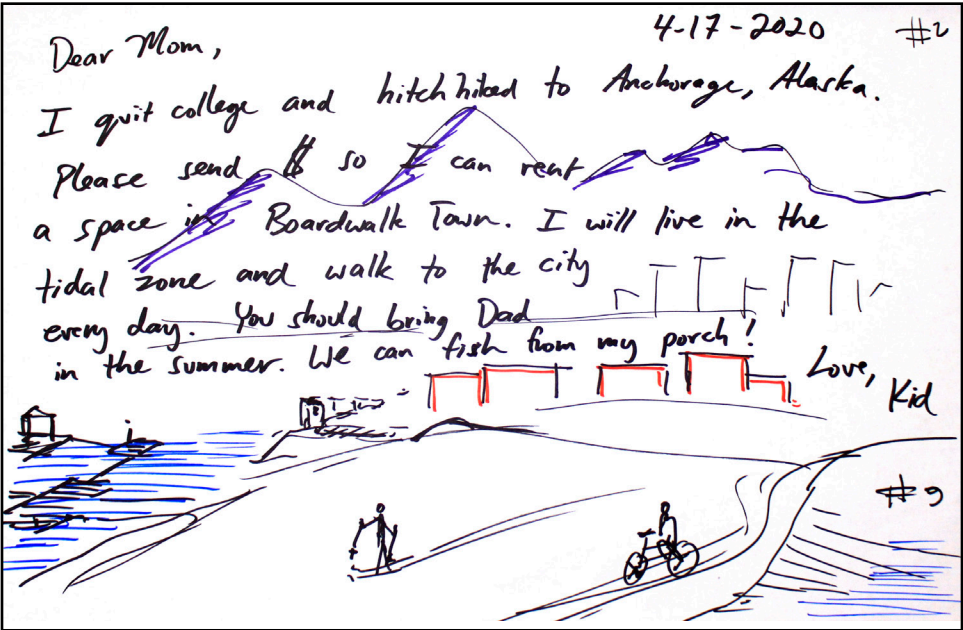 4-17-2020 #2
Dear Mom,
I quit college and hitch hiked to Anchorage, Alaska.
Please send $ so I can rent
a space in Boardwalk Town. I will live in the
tidal zone and walk to the city
every day. You should bring Dad
in the summer. We can fish from my porch!
Love,
Kid
#9